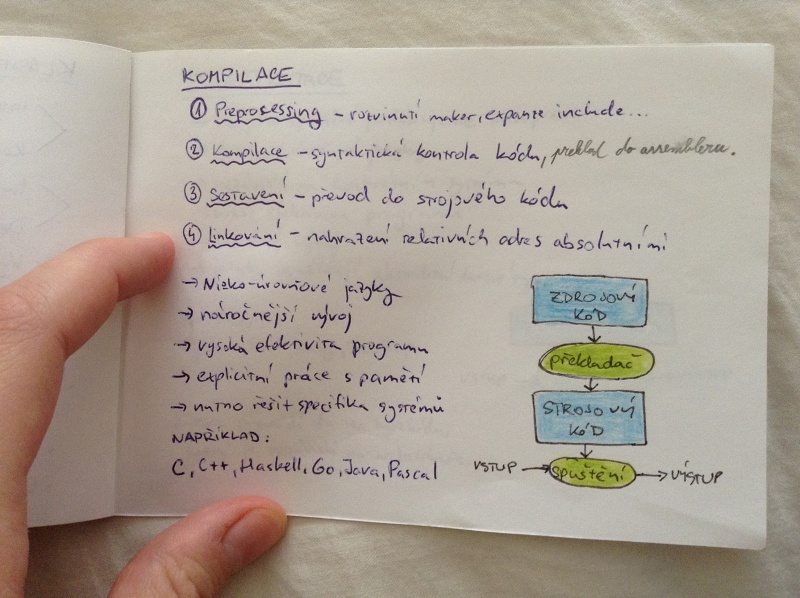 KOMPILACE
① Preprocessing – rozvinutí maker, expanze include...
② Kompilace – syntaktická kontrola kódu, překlad do assembleru.
③ Sestavení – převod do strojového kódu
④ Linkování – nahrazení relativních adres absolutními
→ Nízko-úrovňové jazyky
→ náročnější vývoj
→ vysoká efektivita programu
→ explicitní práce s pamětí
→ nutno řešit specifika systémů
NAPŘÍKLAD:
C, C++, Haskell, Go, Java, Pascal
ZDROJOVÝ
KÓD
překladač
STROJOVÝ
KÓD
VSTUP → spuštění → VÝSTUP